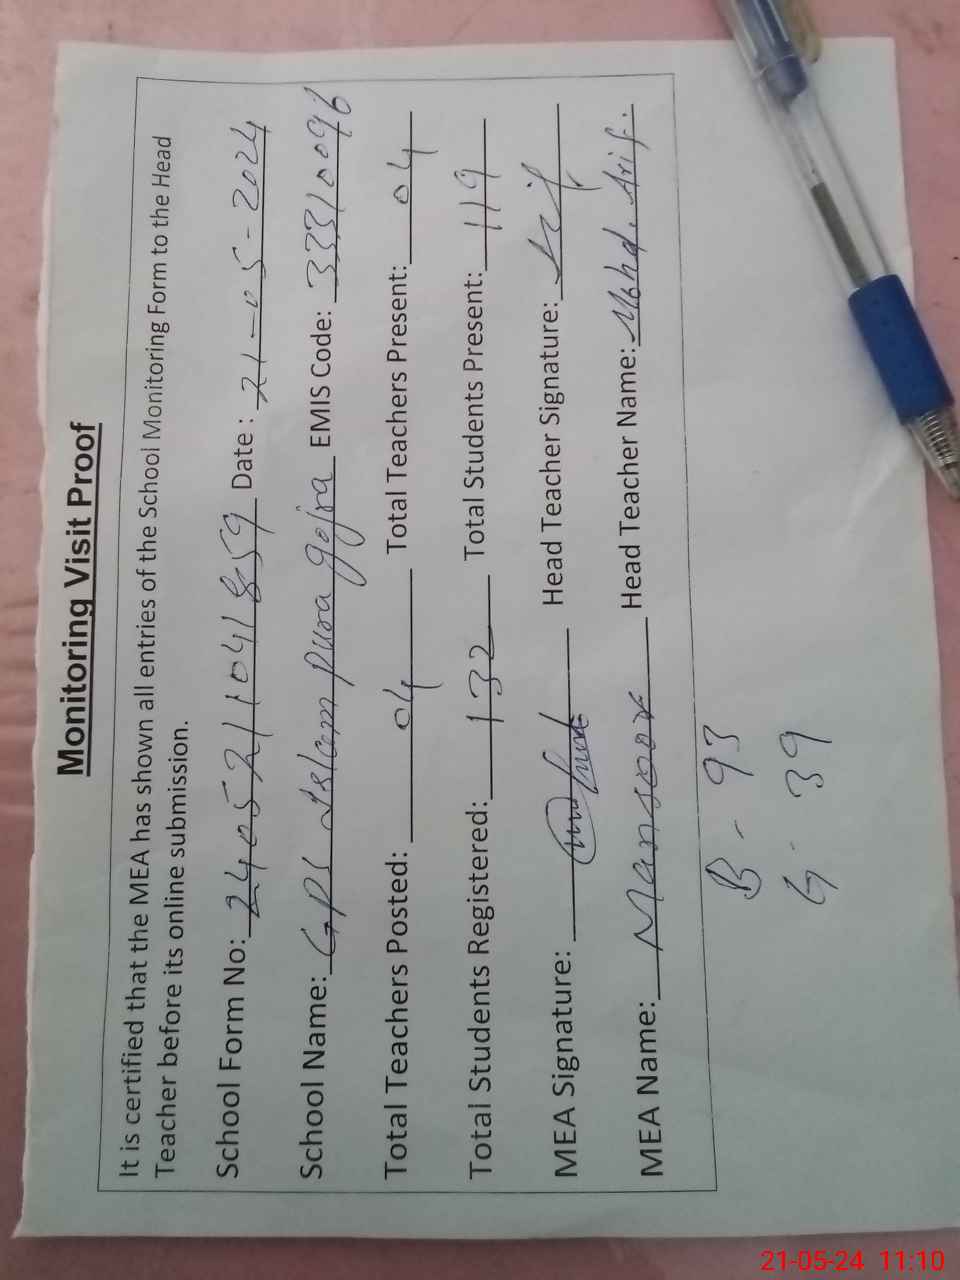 Monitoring Visit Proof
It is certified that the MEA has shown all entries of the School Monitoring Form to the Head
Teacher before its online submission.
School Form No: 2405211041859 Date: 21-05-2024
School Name: GPS Islam pura gojra EMIS Code: 33310096
Total Teachers Posted: 04 Total Teachers Present: 04
Total Students Registered: 132 Total Students Present: 119
MEA Signature: Head Teacher Signature: Arif
MEA Name: Mansoor Head Teacher Name: Mohd. Arif.
B - 93
G - 39
21-05-24 11:10